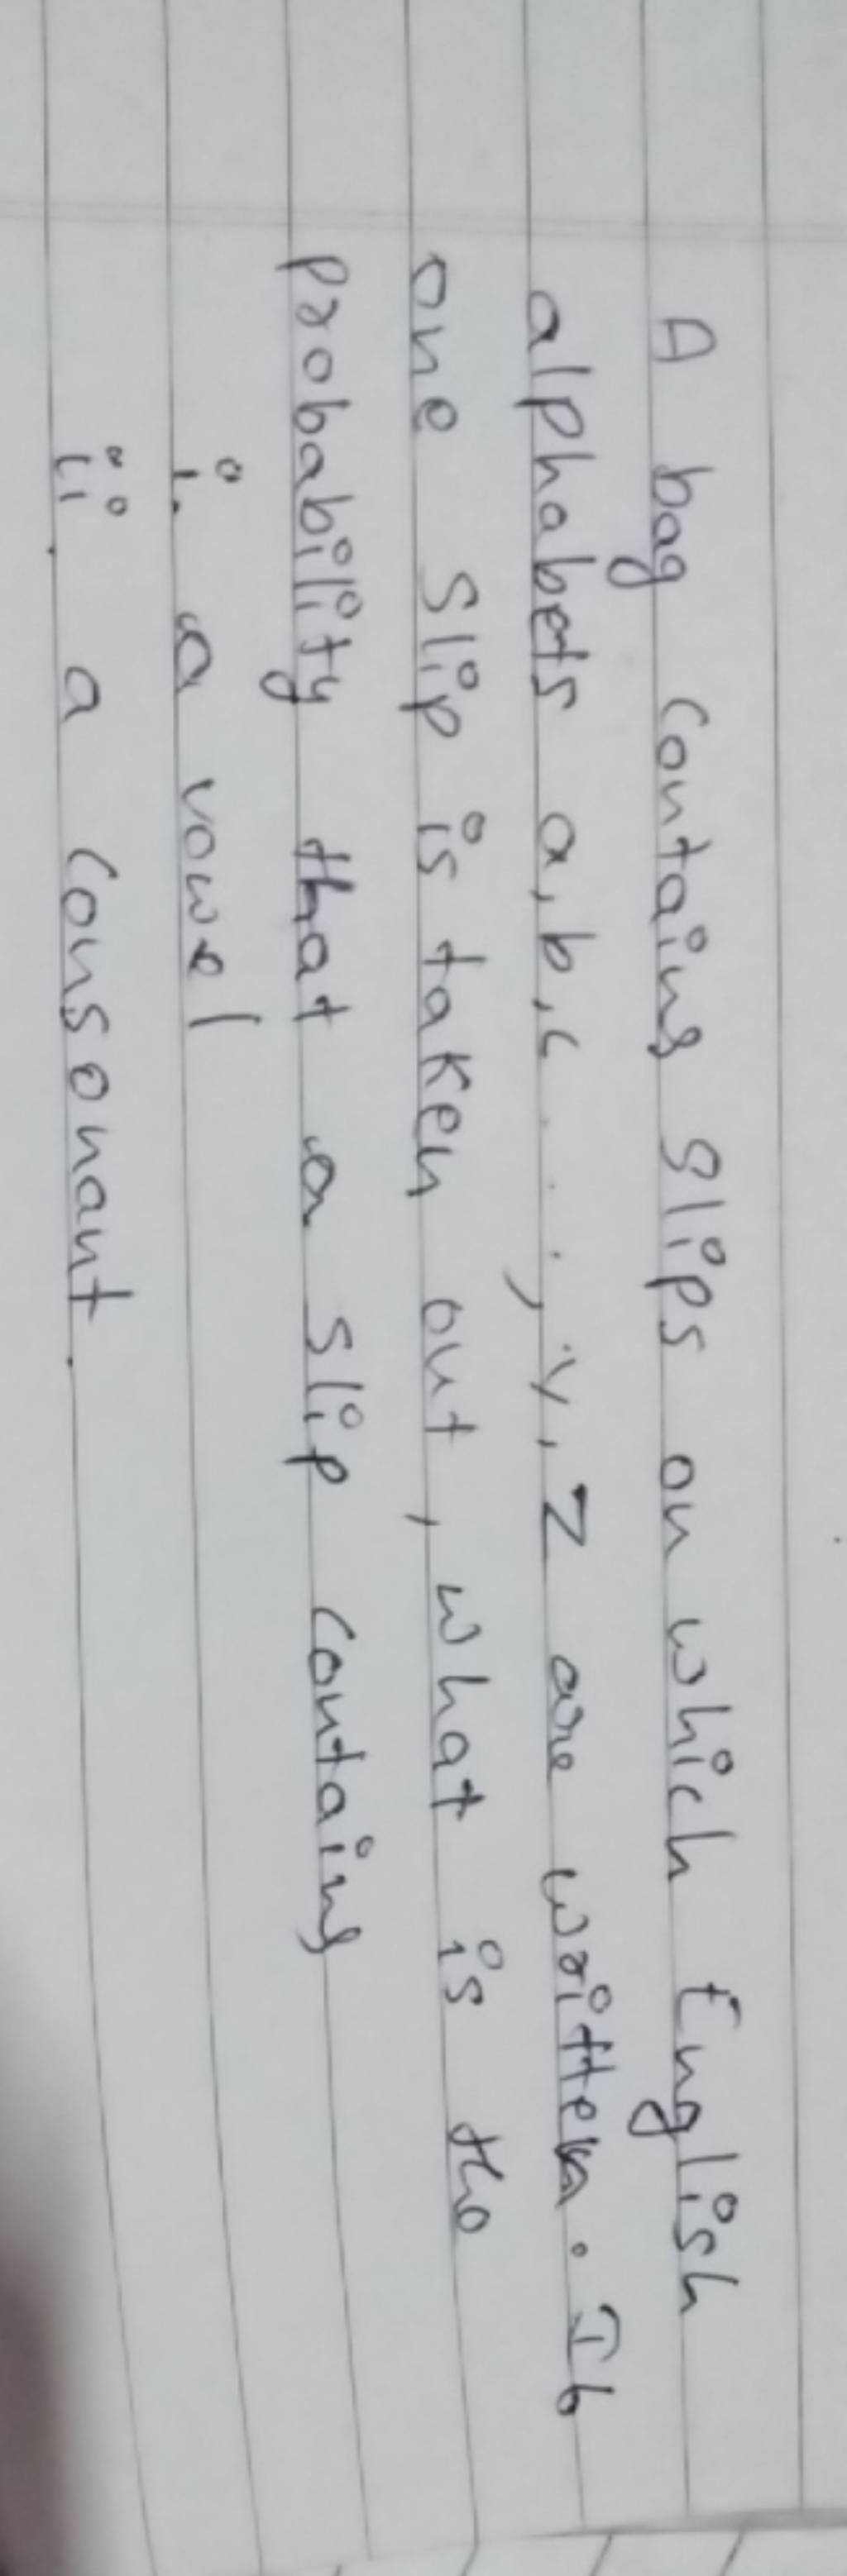 A bag contains slips on which English
alphabets a, b, c . . . , y, z are written. If
one slip is taken out, what is the
probability that a slip contains
i. a vowel
ii. a consonant.